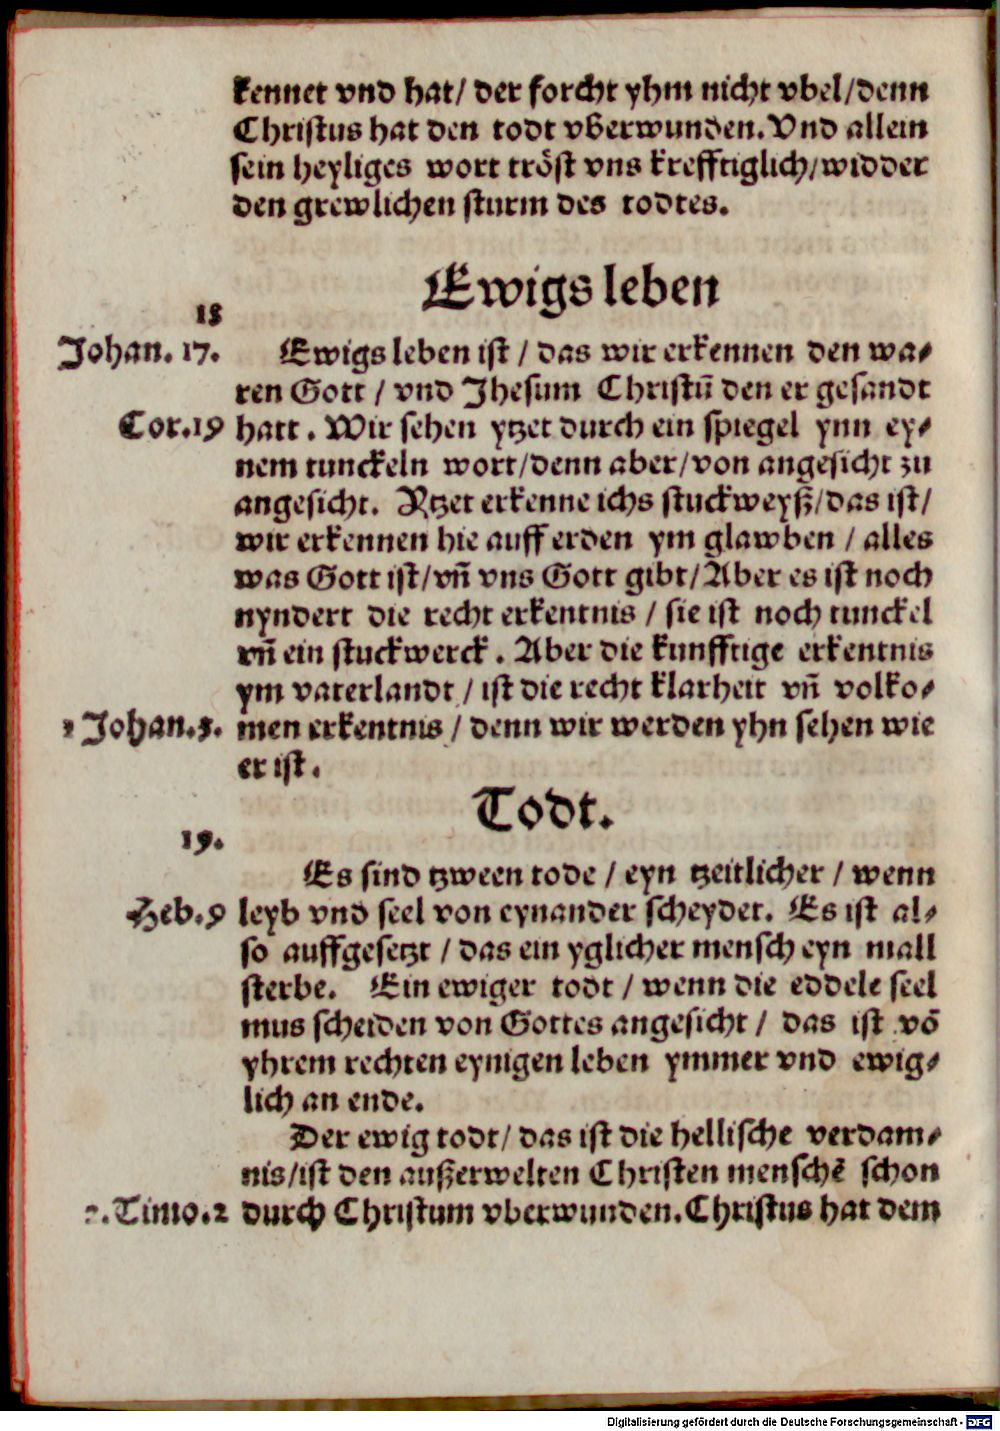 kennet vnd hat/ der forcht yhm nicht vbel/denn
Christus hat den todt vberwunden. Vnd allein
sein heyliges wort tröst vns krefftiglich/widder
den grewlichen sturm des todtes.
Ewigs leben
18
Johan. 17. Ewigs leben ist / das wir erkennen den wa⸗
ren Gott / vnd Jhesum Christū den er gesandt
Cor.19 hatt. Wir sehen ytzet durch ein spiegel ynn ey⸗
nem tunckeln wort/denn aber/von angesicht zu
angesicht. Ytzet erkenne ichs stuckweyß/das ist/
wir erkennen hie auff erden ym glawben / alles
was Gott ist/vn̄ vns Gott gibt/Aber es ist noch
nyndert die recht erkentnis / sie ist noch tunckel
vn̄ ein stuckwerck. Aber die kunfftige erkentnis
ym vaterlandt / ist die recht klarheit vn̄ volko⸗
Johan.3. men erkentnis / denn wir werden yhn sehen wie
er ist.
Todt.
19.
Es sind tzween tode / eyn tzeitlicher / wenn
Heb.9 leyb vnd seel von eynander scheydet. Es ist al⸗
so auffgesetzt / das ein yglicher mensch eyn mall
sterbe. Ein ewiger todt / wenn die eddele seel
mus scheiden von Gottes angesicht / das ist vō
yhrem rechten eynigen leben ymmer vnd ewig⸗
lich an ende.
Der ewig todt/ das ist die hellische verdam⸗
nis/ist den außerwelten Christen menschē schon
Timo.2 durch Christum vberwunden. Christus hat dem
Digitalisierung gefördert durch die Deutsche Forschungsgemeinschaft - DFG